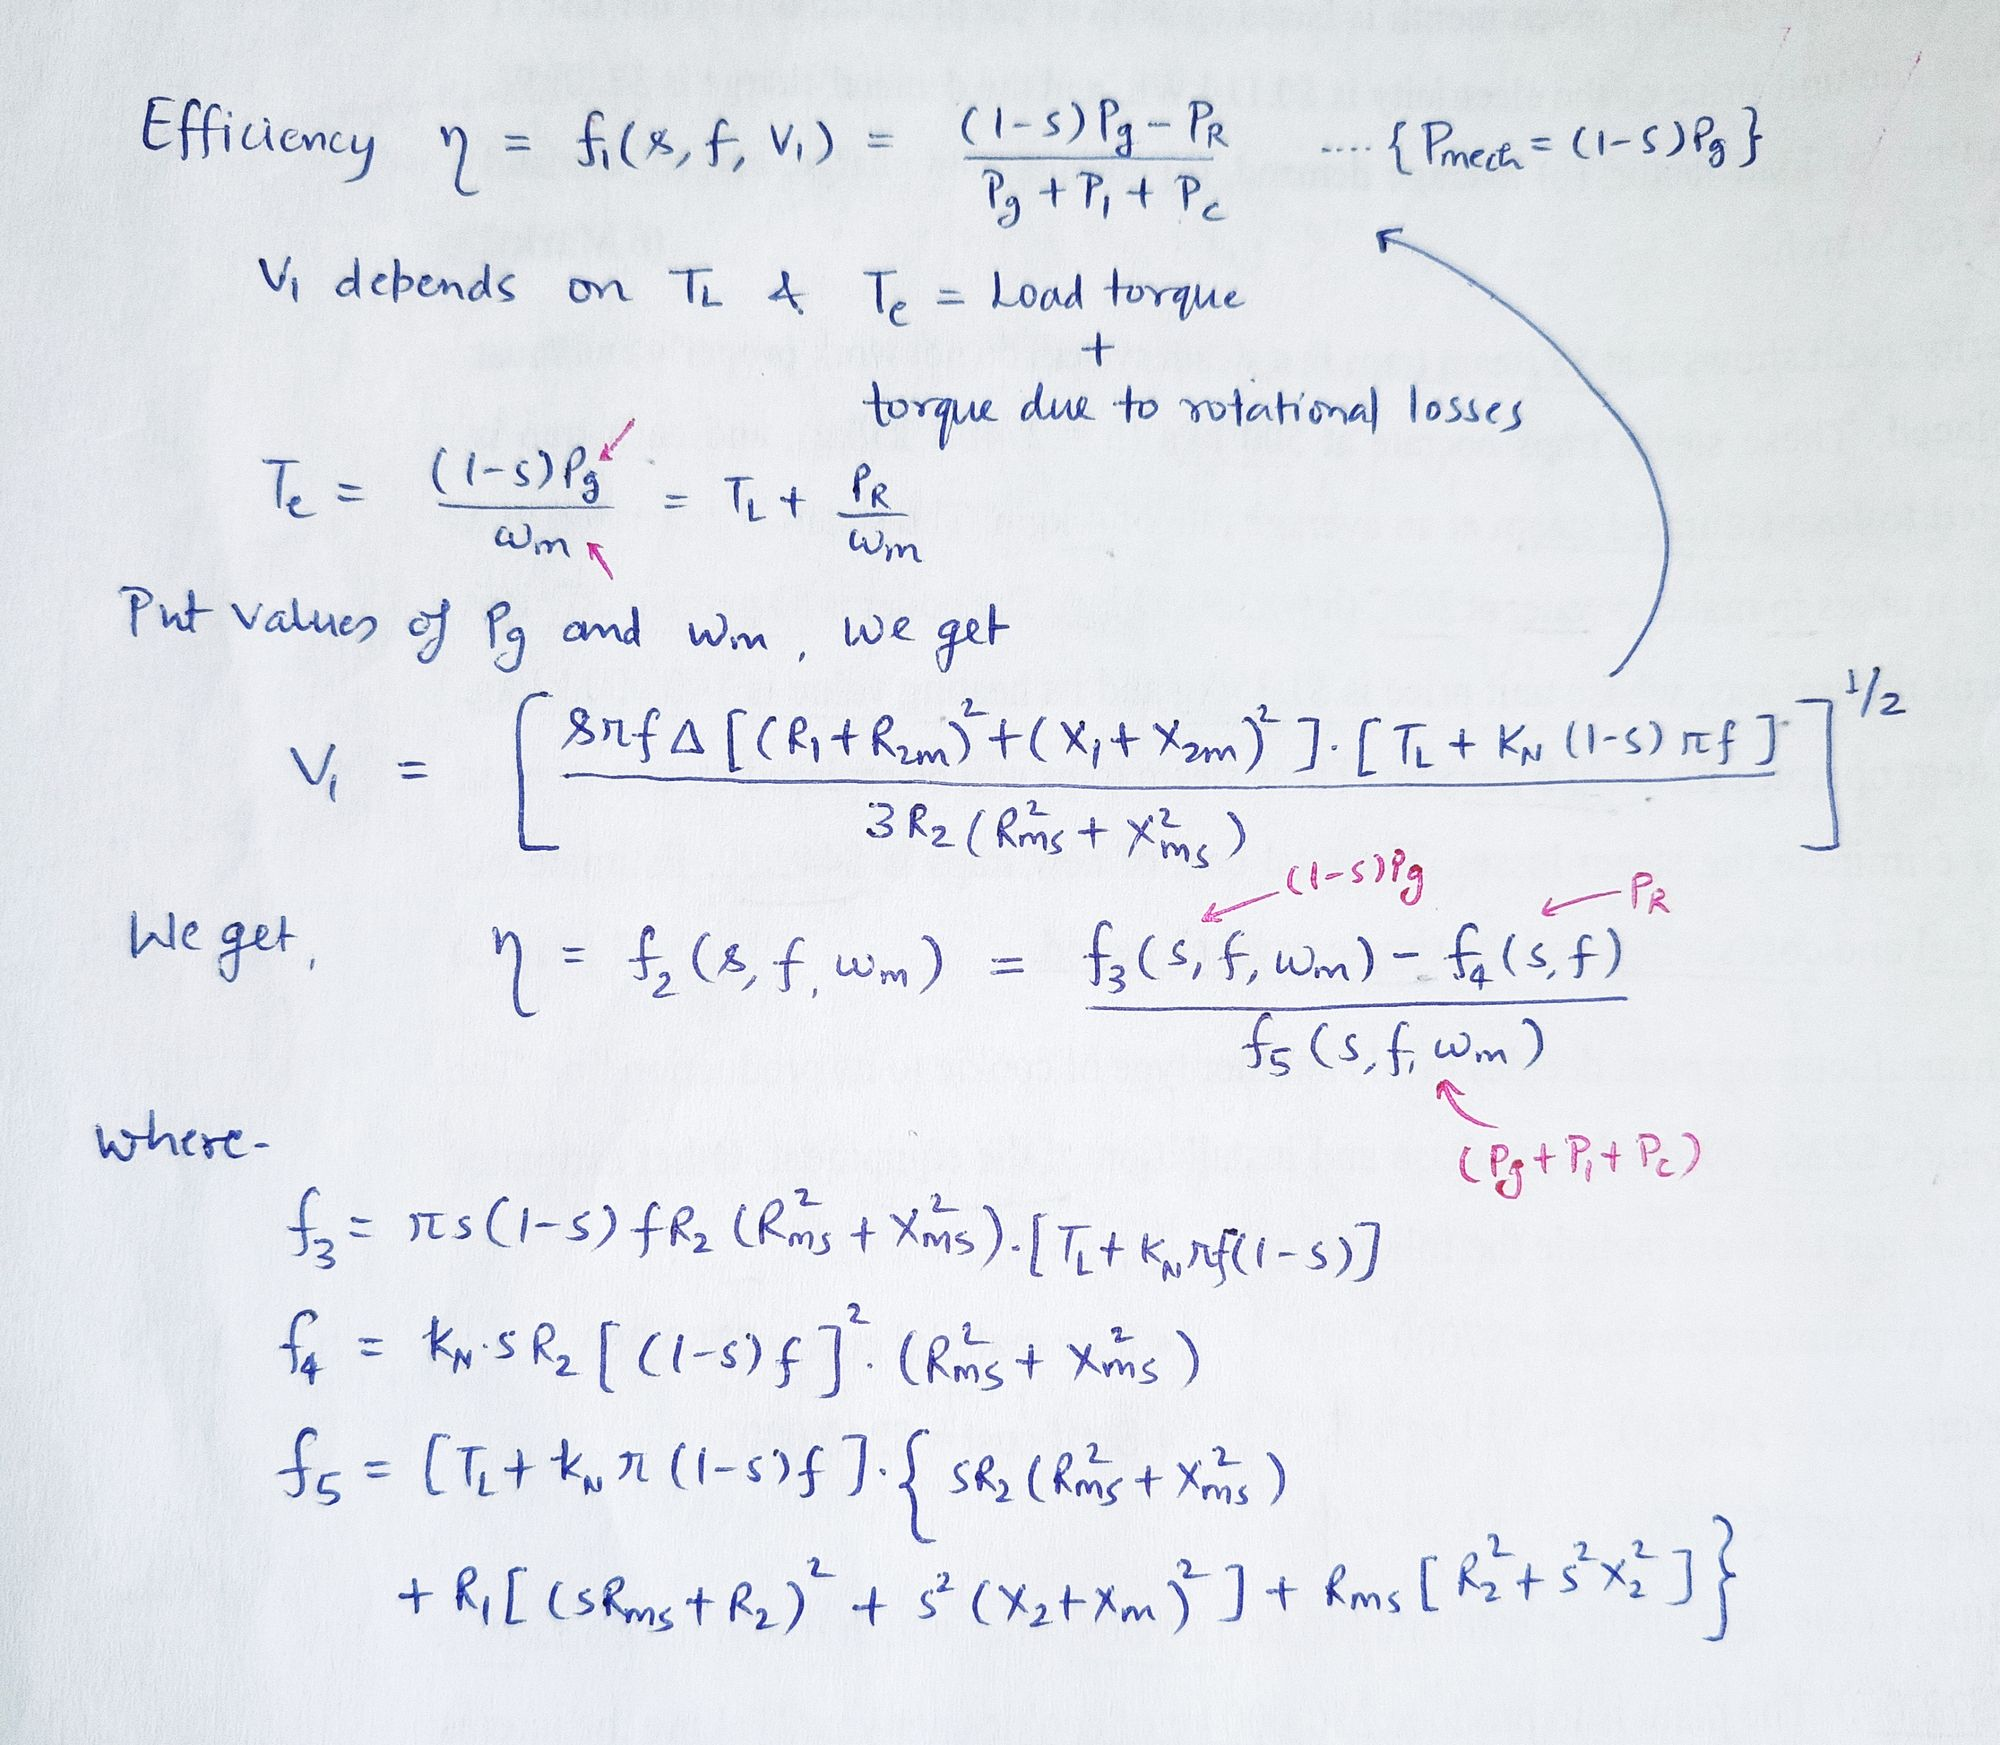 Efficiency η = f₁(s, f, V₁) = ((1-s)Pg - PR) / (Pg + P₁ + Pc) .... {Pmech = (1-s)Pg}
V₁ depends on TL & Te = Load torque
+
torque due to rotational losses
Te = (1-s)Pg / ωm = TL + PR / ωm
Put values of Pg and ωm, we get
V₁ = [ sπfΔ[(R₁+R₂m)²+(X₁+X₂m)²].[TL + KN (1-s) πf] / 3R₂(Rms² + Xms²) ]^1/2
(1-s)Pg
PR
We get, η = f₂(s, f, ωm) = (f₃(s, f, ωm) - f₄(s, f)) / f₅(s, f, ωm)
(Pg + P₁ + Pc)
where-
f₃ = πs(1-s)fR₂(Rms² + Xms²).[TL + KNπf(1-s)]
f₄ = KN.sR₂[(1-s)f]².(Rms² + Xms²)
f₅ = [TL + KNπ(1-s)f].{sR₂(Rms² + Xms²)
+ R₁[(sRms + R₂)² + s²(X₂ + Xm)²] + Rms[R₂² + s²X₂²]}